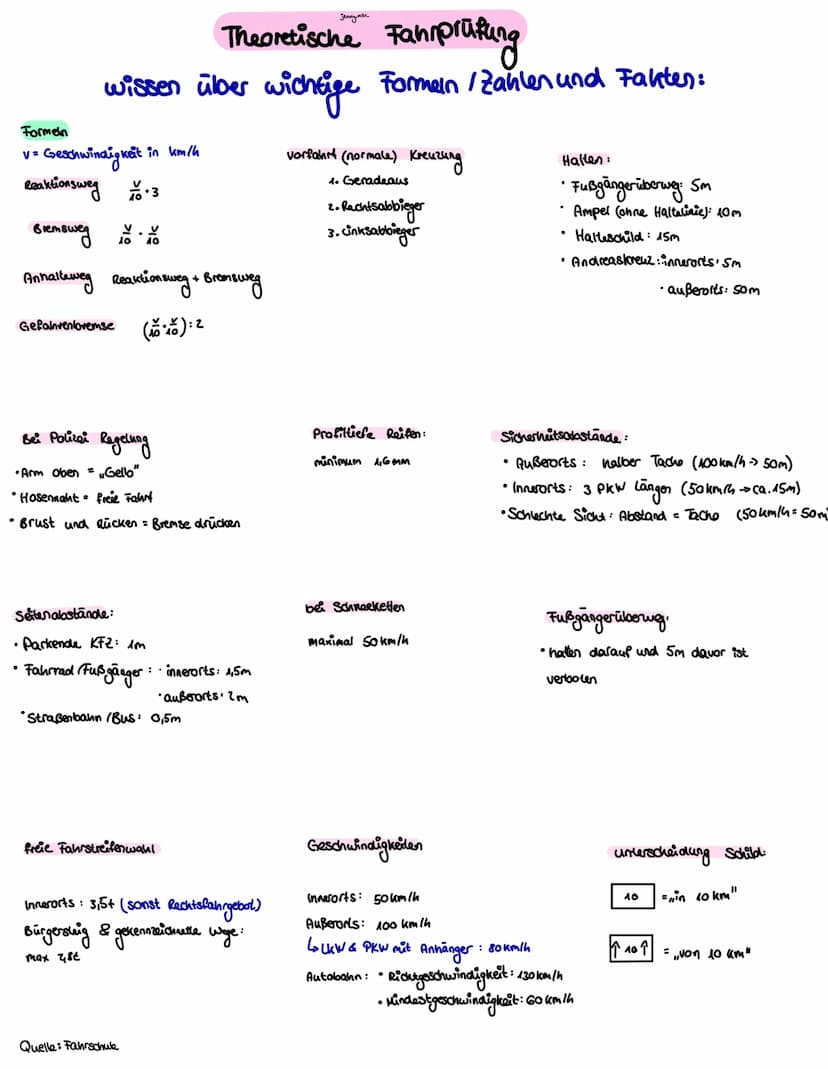 Theoretische Fahrprüfung
Wissen über wichtige Formeln / Zahlen und Fakten:
Formeln
V = Geschwindigkeit in km/h
Reaktionsweg V/10 · 3
Bremsweg V/10 · V/10
Anhalteweg Reaktionsweg + Bremsweg
Gefahrenbremse (V/10 · V/10) : 2
Vorfahrt (normale) Kreuzung
1. Geradeaus
2. Rechtsabbieger
3. Linksabbieger
Halten:
• Fußgängerüberweg: 5m
• Ampel (ohne Haltelinie): 10m
• Halteschild: 15m
• Andreaskreuz: innerorts: 5m
• außerorts: 50m
Bei Polizei Regelung
• Arm oben = „Gelb"
• Hosennaht = freie Fahrt
• Brust und Rücken = Bremse drücken
Profiltiefe Reifen:
minimum 1,6mm
Sicherheitsabstände:
• Außerorts: halber Tacho (100km/h → 50m)
• Innerorts: 3 PKW Längen (50km/h → ca. 15m)
• Schlechte Sicht: Abstand = Tacho (50km/h = 50m
Seitenabstände:
• Parkende KFZ: 1m
• Fahrrad/Fußgänger: • innerorts: 1,5m
• außerorts: 2m
• Straßenbahn/Bus: 0,5m
bei Schneeketten
maximal 50km/h
Fußgängerüberweg:
• halten darauf und 5m davor ist
verboten
freie Fahrstreifenwahl
Innerorts: 3,5t (sonst Rechtsfahrgebot)
Bürgersteig & gekennzeichnete Wege:
max 2,8t
Geschwindigkeiten
Innerorts: 50km/h
Außerorts: 100 km/h
↳ LKW & PKW mit Anhänger: 80km/h
Autobahn: • Richtgeschwindigkeit: 130km/h
• Mindestgeschwindigkeit: 60km/h
Unterscheidung Schild:
10 = „in 10 km"
↑ 10 ↑ = „von 10 km"
Quelle: Fahrschule